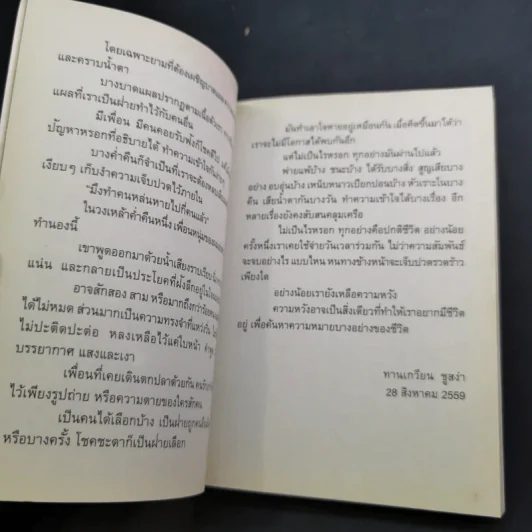 โดยเฉพาะยามที่ต้องเผชิญ
และคราบน้ำตา
บางบาดแผลปรากฏตามเนื้อตัว
แผลที่เราเป็นฝ่ายทำไว้กับคนอื่น
มีเพื่อน มีคนคอยรับฟังก็โชคดีไป
ปัญหาหรอกที่อธิบายได้ ทำความเข้าใจกัน
บางค่ำคืนก็จำเป็นที่จะต้อง
เงียบๆ เก็บงำความเจ็บปวดไว้ภายใน
"มึงทำคนหล่นหายไปกี่คนแล้ว"
ในวงเหล้าค่ำคืนหนึ่ง เพื่อนหนุ่ม
ทำนองนี้
เขาพูดออกมาด้วยน้ำเสียงราบเรียบ
แน่น และกลายเป็นประโยคที่ฝังลึกอยู่
อาจสักสอง สาม หรือมากถึงกว่าร้อย
ได้ไม่หมด ส่วนมากเป็นความทรงจำที่แหว่งวิ่น
ไม่ปะติดปะต่อ หลงเหลือไว้แค่ใบหน้า
บรรยากาศ แสงและเงา
เพื่อนที่เคยเดินตกปลาด้วยกัน
ไว้เพียงรูปถ่าย หรือความตายของใครสักคน
เป็นคนได้เลือกบ้าง เป็นฝ่ายถูก
หรือบางครั้ง โชคชะตาก็เป็นฝ่ายเลือก
มันทำเอาใจหายอยู่เหมือนกัน เมื่อคิดขึ้นมาได้ว่า
เราจะไม่มีโอกาสได้พบกันอีก
แต่ไม่เป็นไรหรอก ทุกอย่างมันผ่านไปแล้ว
พ่ายแพ้บ้าง ชนะบ้าง ได้รับบางสิ่ง สูญเสียบาง
อย่าง อบอุ่นบ้าง เหน็บหนาวเยียบก่อนบ้าง หัวเราะในบาง
คืน เสียน้ำตากันบางวัน ทำความเข้าใจได้บางเรื่อง อีก
หลายเรื่องยังคงสับสนคลุมเครือ
ไม่เป็นไรหรอก ทุกอย่างคือปกติชีวิต อย่างน้อย
ครั้งหนึ่งเราเคยใช้จ่ายวันเวลาร่วมกัน ไม่ว่าความสัมพันธ์
จะจบอย่างไร แบบไหน หนทางข้างหน้าจะเจ็บปวดรวดร้าว
เพียงใด
อย่างน้อยเรายังเหลือความหวัง
ความหวังอาจเป็นสิ่งเดียวที่ทำให้เราอยากมีชีวิต
อยู่ เพื่อค้นหาความหมายบางอย่างของชีวิต
ทานเกวียน ชูสง่า
28 สิงหาคม 2559